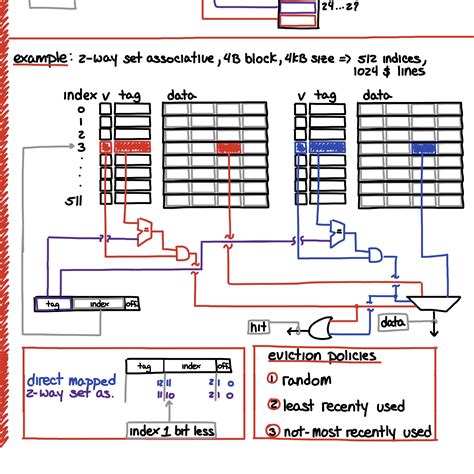 24...29
example: 2-way set associative, 4B block, 4kB size => 512 indices,
1024 $ lines
index v tag data v tag data
0
1
2
3
.
.
.
511
=
=
tag index off.
hit
data
tag index off.
direct mapped 12 11 2 1 0
2-way set as. 11 10 2 1 0
index 1 bit less
eviction policies
1 random
2 least recently used
3 not-most recently used